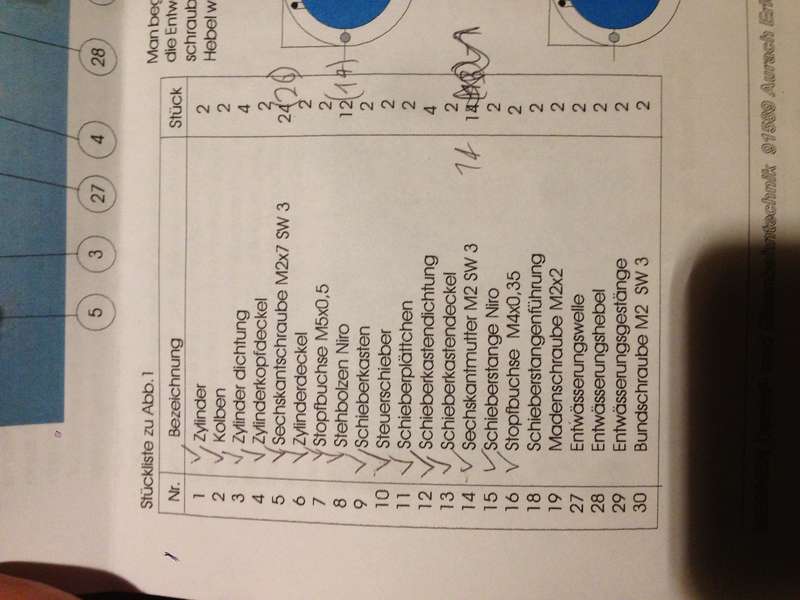 5 3 27 4 28
Man beg
die Entw
schraub
Hebel w
Stückliste zu Abb.1
Nr. Bezeichnung Stück
1 Zylinder 2
2 Kolben 2
3 Zylinder dichtung 4
4 Zylinderkopfdeckel 2
5 Sechskantschraube M2x7 SW 3 24 (26)
6 Zylinderdeckel 2
7 Stopfbuchse M5x0,5 2
8 Stehbolzen Niro 12 (14)
9 Schieberkasten 2
10 Steuerschieber 2
11 Schieberplättchen 2
12 Schieberkastendichtung 4
13 Schieberkastendeckel 2
14 Sechskantmutter M2 SW 3 14 14
15 Schieberstange Niro 2
16 Stopfbuchse M4x0,35 2
18 Schieberstangenführung 2
19 Madenschraube M2x2 2
27 Entwässerungswelle 2
28 Entwässerungshebel 2
29 Entwässerungsgestänge 2
30 Bundschraube M2 SW 3 2
91589 Aurach